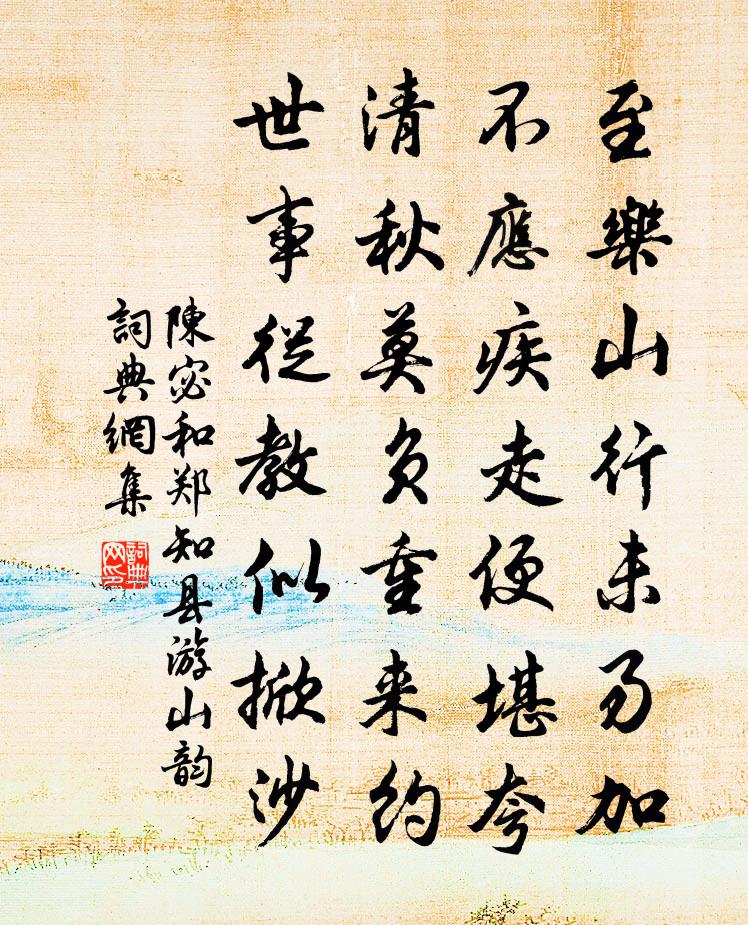 至樂山行未易加
不應疾走便堪夸
清秋莫負重来約
世事從教似掀沙
陳宓和郑知县游山韵
詞典網集
詞典
网印